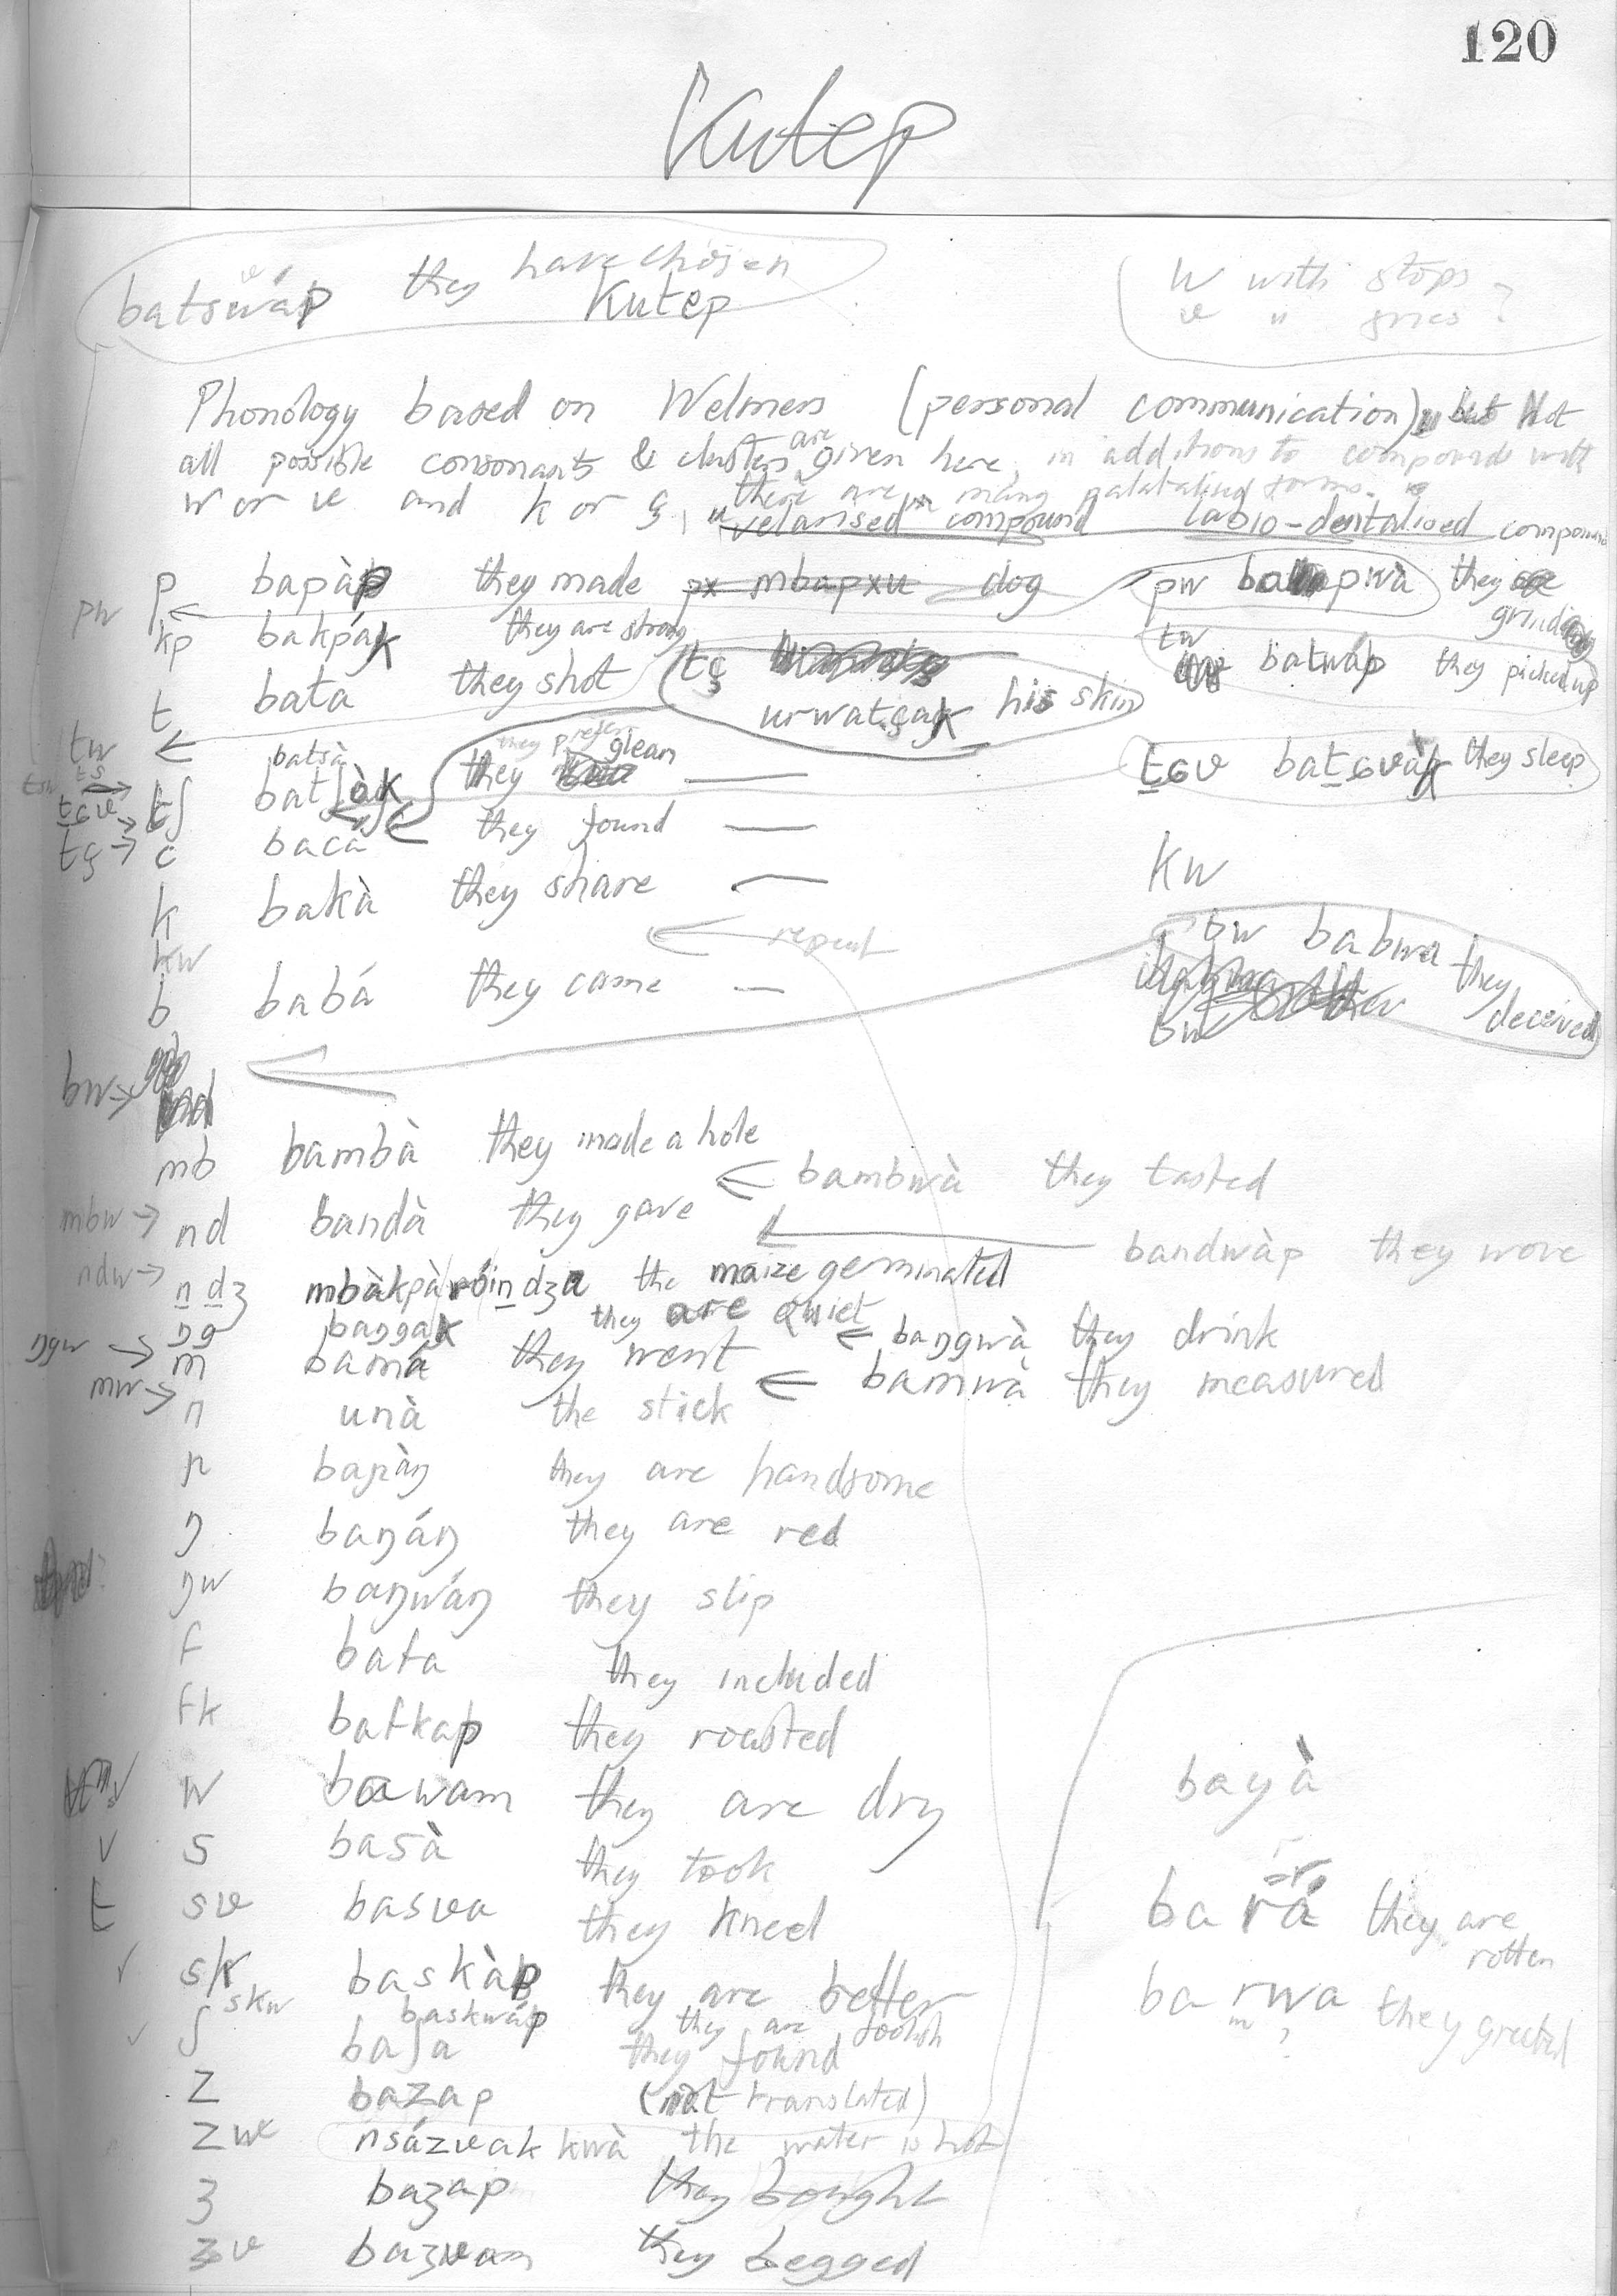 120
Kutep
batswáp they have chosen
Kutep
w with stops
ʋ " frics ?
Phonology based on Welmers (personal communication), Not
all possible consonants & clusters are given here, in additions to compounds with
w or ʋ and k or ç, there are many palatalised forms.
velarised compound labio-dentalised compound
p bapàp they made px mbapxu dog pw bapwà they grind
pw
kp bakpák they are strong
tw batwap they picked up
t bata they shot tç urwatçak his skin
tw
batsà they prefer
ts
tʃ batʃàk they glean — tɕʋ batɕʋàk they sleep
tɕʋ
tç
c baca they found —
k bakà they share — kw
kw repeat
bw babwa they deceived
b babá they came — bw
bw
mb bambà they made a hole
bambwà they tasted
mbw nd bandà they gave
bandwàp they wore
ndw ndʒ mbàkpàróindʒa the maize germinated
ŋg baŋgak they are quiet baŋgwà they drink
ŋgw m bamá they went bamwà they measured
mw n unà the stick
ɲ baɲàŋ they are handsome
ŋ baŋáŋ they are red
ŋw baŋwáŋ they slip
f bafa they included
fk bafkap they roasted
w bawam they are dry
bayà
s basà they took
sʋ basʋa they kneel
bará they are rotten
sk baskàp they are better
skw baskwáp they are foolish
barwa they greeted
ʃ baʃa they found
z bazap (not translated)
zʋ nsázʋakkwà the water is hot
ʒ baʒap they bought
ʒʋ baʒʋam they begged